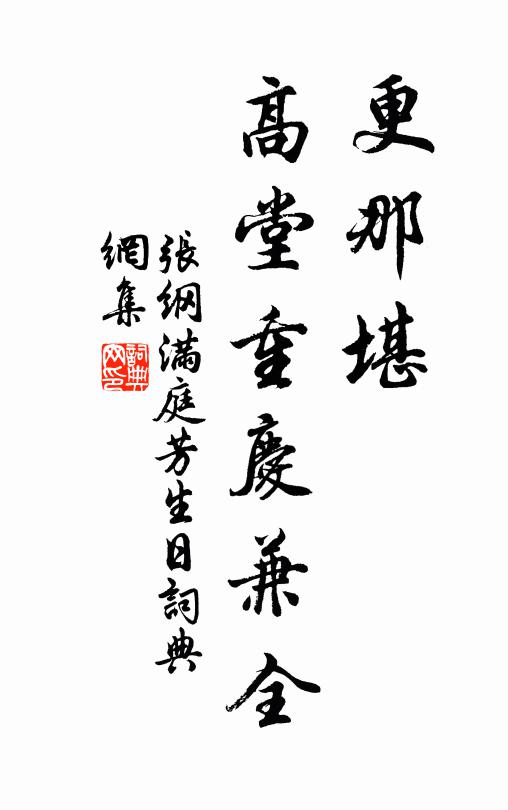 更那堪
高堂重慶兼全
張綱滿庭芳生日詞典
網集
詞典網印